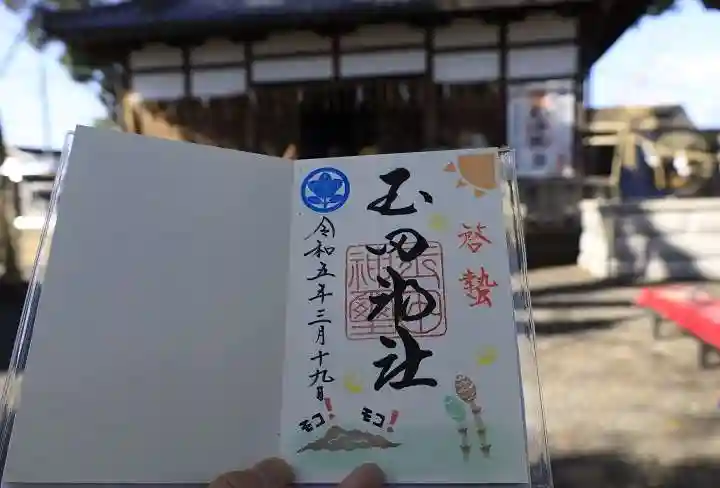 啓蟄
玉田神社
令和五年三月十九日
モコ!
モコ!